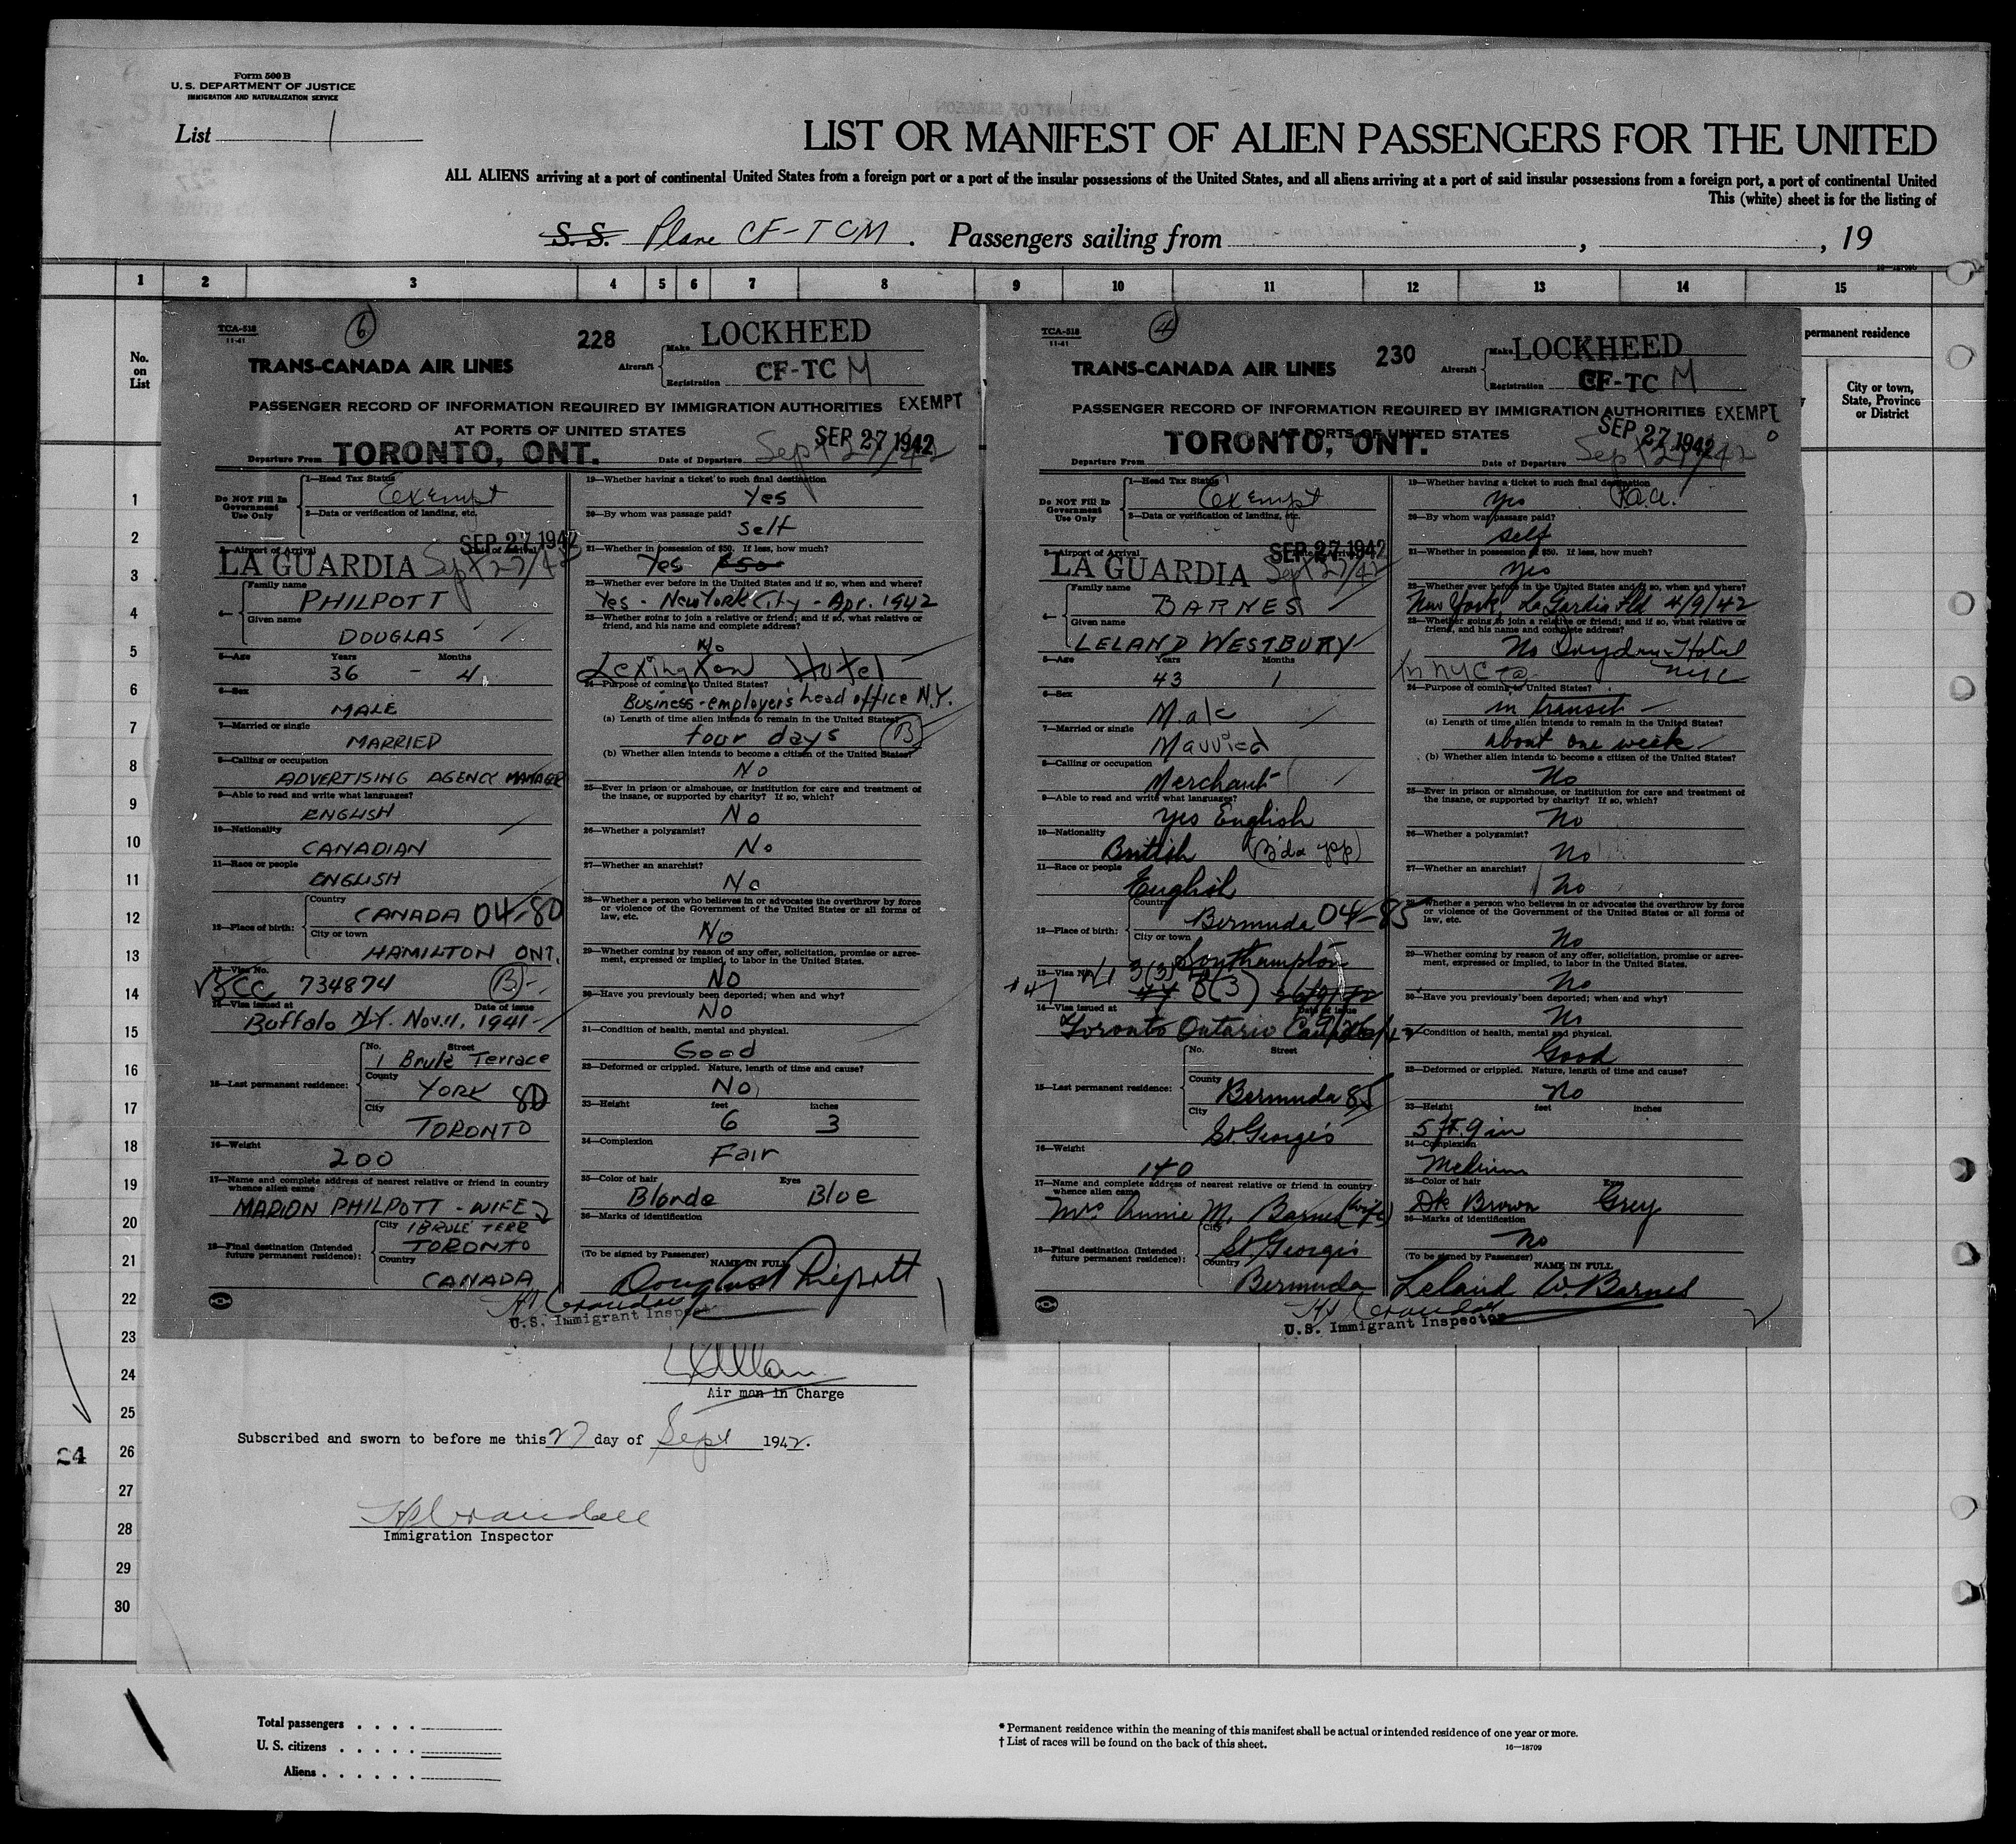 Form 500 B
U. S. DEPARTMENT OF JUSTICE
IMMIGRATION AND NATURALIZATION SERVICE
List 1
LIST OR MANIFEST OF ALIEN PASSENGERS FOR THE UNITED
ALL ALIENS arriving at a port of continental United States from a foreign port or a port of the insular possessions of the United States, and all aliens arriving at a port of said insular possessions from a foreign port, a port of continental United
This (white) sheet is for the listing of
S.S. Plane CF-TCM. Passengers sailing from , , 19
1 2 3 4 5 6 7 8 9 10 11 12 13 14 15
No. on List
permanent residence
City or town, State, Province or District
TCA-518
11-41
6
228
Make LOCKHEED
TRANS-CANADA AIR LINES
Aircraft
Registration CF-TC M
PASSENGER RECORD OF INFORMATION REQUIRED BY IMMIGRATION AUTHORITIES EXEMPT
AT PORTS OF UNITED STATES
SEP 27 1942
Departure From TORONTO, ONT. Date of Departure Sept 27/42
Do NOT Fill In Government Use Only
1—Head Tax Status Exempt
2—Data or verification of landing, etc.
3—Airport of Arrival LA GUARDIA
Date of Arrival SEP 27 1942 Sept 27/42
4— Family name PHILPOTT
Given name DOUGLAS
5—Age Years 36 - Months 4
6—Sex MALE
7—Married or single MARRIED
8—Calling or occupation ADVERTISING AGENCY MANAGER
9—Able to read and write what languages? ENGLISH
10—Nationality CANADIAN
11—Race or people ENGLISH
12—Place of birth: Country CANADA 04-80
City or town HAMILTON ONT.
13—Visa No. BCC 734874 B
14—Visa issued at Date of issue
Buffalo N.Y. Nov. 11, 1941
15—Last permanent residence: No. Street 1 Brulé Terrace
County YORK 80
City TORONTO
16—Weight 200
17—Name and complete address of nearest relative or friend in country whence alien came
MARION PHILPOTT - WIFE
18—Final destination (Intended future permanent residence): City 1 BRULÉ TERR TORONTO
Country CANADA
U.S. Immigrant Inspector
19—Whether having a ticket to such final destination Yes
20—By whom was passage paid? Self
21—Whether in possession of $50. If less, how much? Yes $50
22—Whether ever before in the United States and if so, when and where?
Yes - New York City - Apr. 1942
23—Whether going to join a relative or friend; and if so, what relative or friend, and his name and complete address?
No
Lexington Hotel
24—Purpose of coming to United States?
Business - employer's head office N.Y.
(a) Length of time alien intends to remain in the United States?
four days B
(b) Whether alien intends to become a citizen of the United States?
No
25—Ever in prison or almshouse, or institution for care and treatment of the insane, or supported by charity? If so, which?
No
26—Whether a polygamist? No
27—Whether an anarchist? No
28—Whether a person who believes in or advocates the overthrow by force or violence of the Government of the United States or all forms of law, etc.
No
29—Whether coming by reason of any offer, solicitation, promise or agreement, expressed or implied, to labor in the United States.
NO
30—Have you previously been deported; when and why? No
31—Condition of health, mental and physical. Good
32—Deformed or crippled. Nature, length of time and cause? No
33—Height feet 6 inches 3
34—Complexion Fair
35—Color of hair Blonde Eyes Blue
36—Marks of identification
(To be signed by Passenger) NAME IN FULL
Douglas Philpott
TCA-518
11-41
4
230
Make LOCKHEED
TRANS-CANADA AIR LINES
Aircraft
Registration CF-TC M
PASSENGER RECORD OF INFORMATION REQUIRED BY IMMIGRATION AUTHORITIES EXEMPT
AT PORTS OF UNITED STATES
SEP 27 1942
Departure From TORONTO, ONT. Date of Departure Sept 27/42
Do NOT Fill In Government Use Only
1—Head Tax Status Exempt
2—Data or verification of landing, etc.
3—Airport of Arrival LA GUARDIA
SEP 27 1942 Sept 27/42
4— Family name BARNES
Given name LELAND WESTBURY
5—Age Years 43 Months 1
6—Sex Male
7—Married or single Married
8—Calling or occupation Merchant
9—Able to read and write what languages? yes English
10—Nationality British (B'da pp)
11—Race or people English
12—Place of birth: Country Bermuda 04-85
City or town Southampton
13—Visa No. 3(3)
14—Visa issued at Date of issue
Toronto Ontario
15—Last permanent residence: No. Street
County Bermuda 85
City St. George's
16—Weight 140
17—Name and complete address of nearest relative or friend in country whence alien came
Mrs Annie M. Barnes (wife)
18—Final destination (Intended future permanent residence): City St. George's
Country Bermuda
U.S. Immigrant Inspector
19—Whether having a ticket to such final destination yes P.a.a.
20—By whom was passage paid? Self
21—Whether in possession of $50. If less, how much? yes
22—Whether ever before in the United States and if so, when and where?
New York. La Gardia Fld 4/9/42
23—Whether going to join a relative or friend; and if so, what relative or friend, and his name and complete address?
No Hotel
NYC
24—Purpose of coming to United States?
in transit
(a) Length of time alien intends to remain in the United States?
about one week
(b) Whether alien intends to become a citizen of the United States?
No
25—Ever in prison or almshouse, or institution for care and treatment of the insane, or supported by charity? If so, which?
No
26—Whether a polygamist? No
27—Whether an anarchist? No
28—Whether a person who believes in or advocates the overthrow by force or violence of the Government of the United States or all forms of law, etc.
No
29—Whether coming by reason of any offer, solicitation, promise or agreement, expressed or implied, to labor in the United States.
No
30—Have you previously been deported; when and why? No
31—Condition of health, mental and physical. Good
32—Deformed or crippled. Nature, length of time and cause? No
33—Height feet inches 5 ft. 9 in
34—Complexion Medium
35—Color of hair Dk Brown Eyes Grey
36—Marks of identification No
(To be signed by Passenger) NAME IN FULL
Leland W. Barnes
1
2
3
4
5
6
7
8
9
10
11
12
13
14
15
16
17
18
19
20
21
22
23
24
25
26
27
28
29
30
24
Air man in Charge
Subscribed and sworn to before me this 27 day of Sept 1942.
Crandall
Immigration Inspector
Total passengers . . . .
U. S. citizens . . . . .
Aliens . . . . . .
* Permanent residence within the meaning of this manifest shall be actual or intended residence of one year or more.
† List of races will be found on the back of this sheet.
16—18709